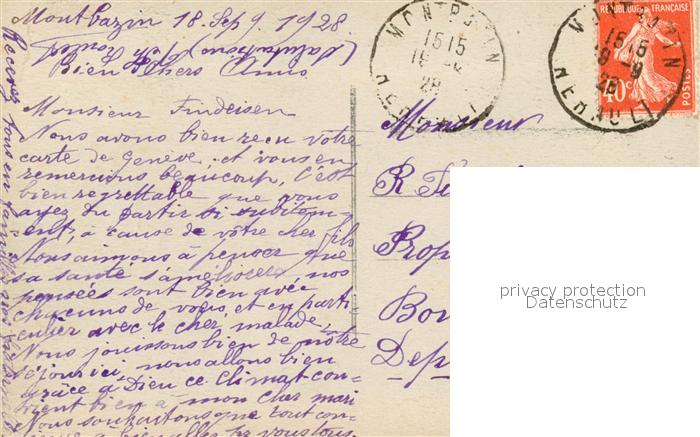 Montbazin 18. Sep 9. 1928
Bien Chers Amis
Monsieur Findeisen
Nous avons bien reçu votre
carte de Genève, et vous en
remercions beaucoup, c'est
bien regrettable que vous
ayez du partir si subitem-
ent, à cause de votre cher fils
Nous aimons à penser que
sa santé s'améliorera, nos
pensées sont bien avec
chacuns de vous, et en parti
culier avec le cher malade
Nous jouissons bien de notre
séjour ici, nous allons bien
grâce à Dieu ce climat con-
vient bien à mon cher mari
Nous souhaitons que tout con-
vous tous
Recevez tous en
MONTBAZIN
1515
28
HERAULT
MONTBAZIN
1515
28
HERAULT
REPUBLIQUE FRANÇAISE
40c
POSTES
Monsieur
R
Prop
Dep
privacy protection
Datenschutz